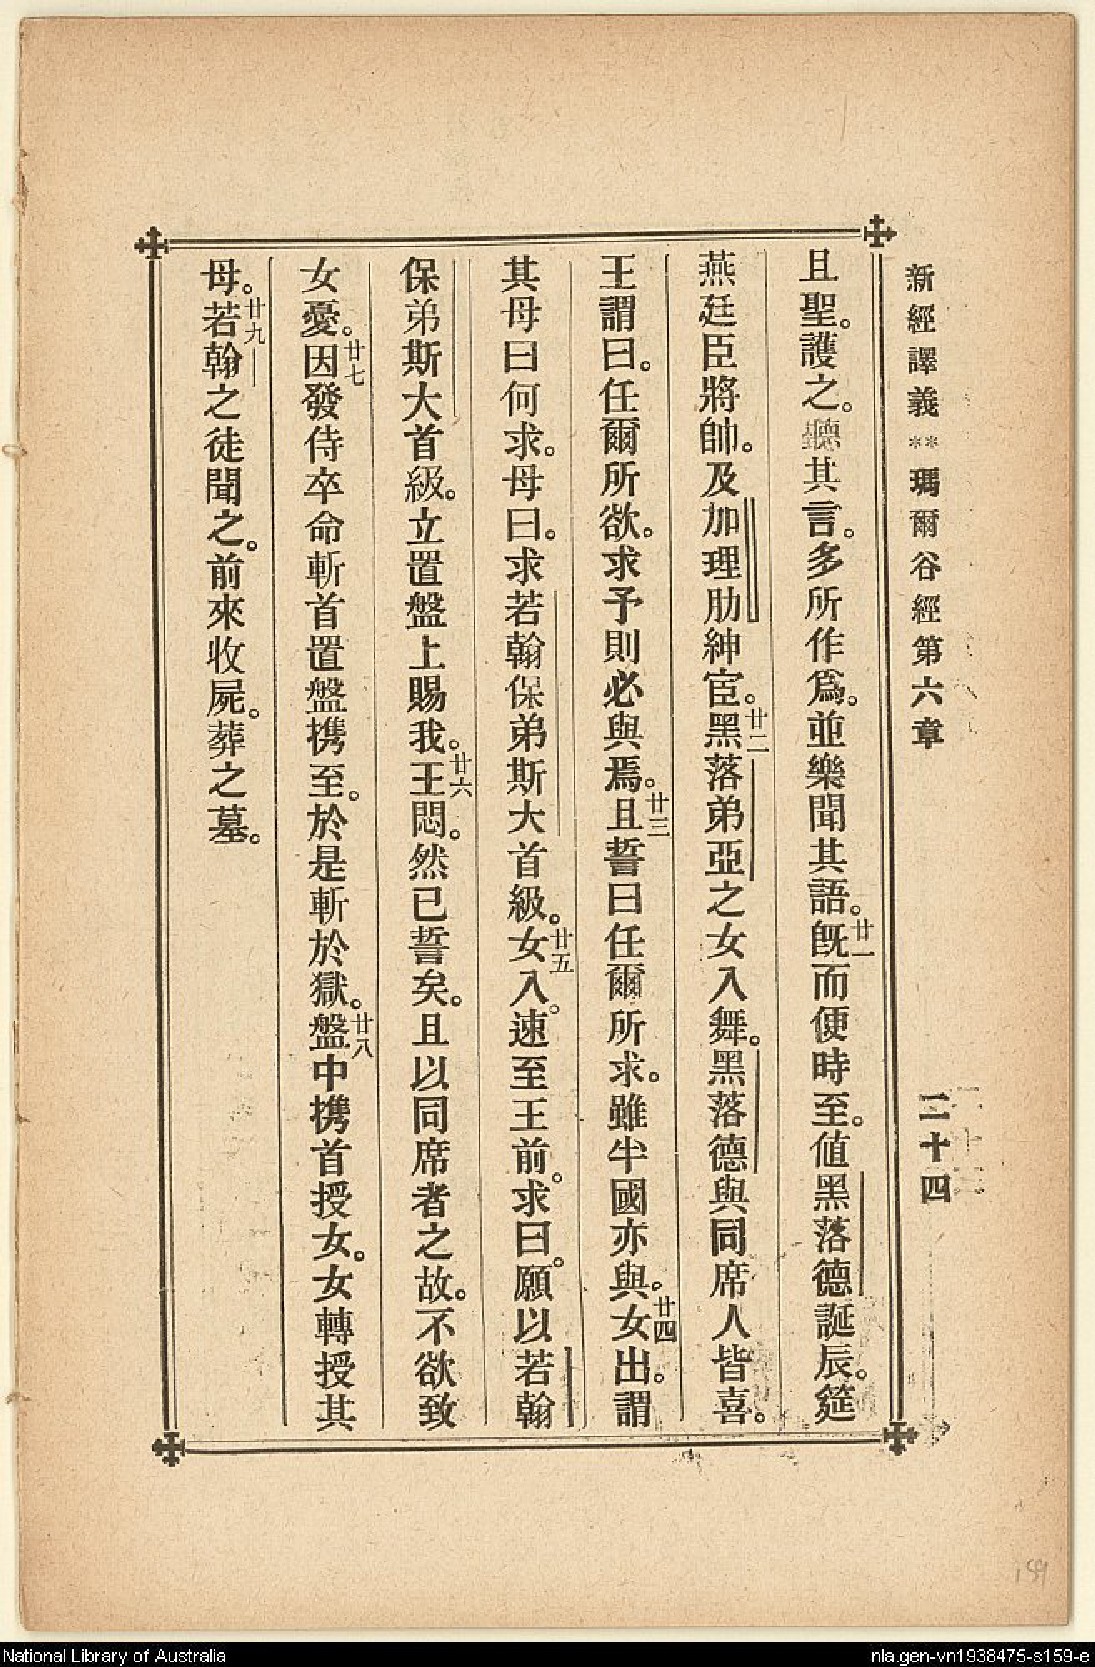 新經譯義**瑪爾谷經第六章 二十四
且聖。護之。聽其言。多所作爲。並樂聞其語。廿一旣而便時至。値黑落德誕辰。筵
燕廷臣將帥。及加理肋紳宦。廿二黑落弟亞之女入舞。黑落德與同席人皆喜。
王謂曰。任爾所欲。求予則必與焉。廿三且誓曰任爾所求。雖半國亦與。廿四女出。謂
其母曰何求。母曰。求若翰保弟斯大首級。廿五女入。速至王前。求曰。願以若翰
保弟斯大首級。立置盤上賜我。廿六王悶。然已誓矣。且以同席者之故。不欲致
女憂。廿七因發侍卒命斬首置盤携至。於是斬於獄。廿八盤中携首授女。女轉授其
母。廿九若翰之徒聞之。前來收屍。葬之墓。
159
National Library of Australia
nla.gen-vn1938475-s159-e